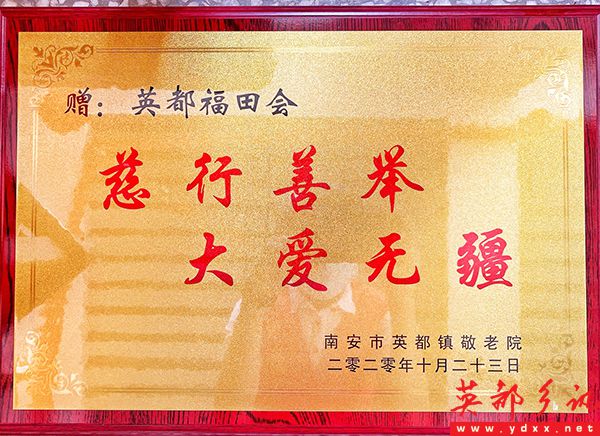 赠：英都福田会
慈行善举
大爱无疆
南安市英都镇敬老院
二零二零年十月二十三日
英都乡讯
www.ydxx.net